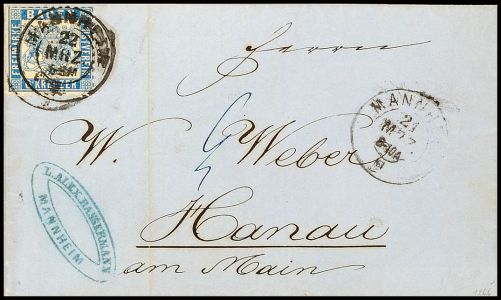 BADEN
FREIMARKE
POSTVEREIN
KREUZER
MANNHEIM
22
MRZ
Herrn
W. Weber
Hanau
am Main
MANNHEIM
21
MRZ
L. ALEX. BASSERMANN
MANNHEIM
1866